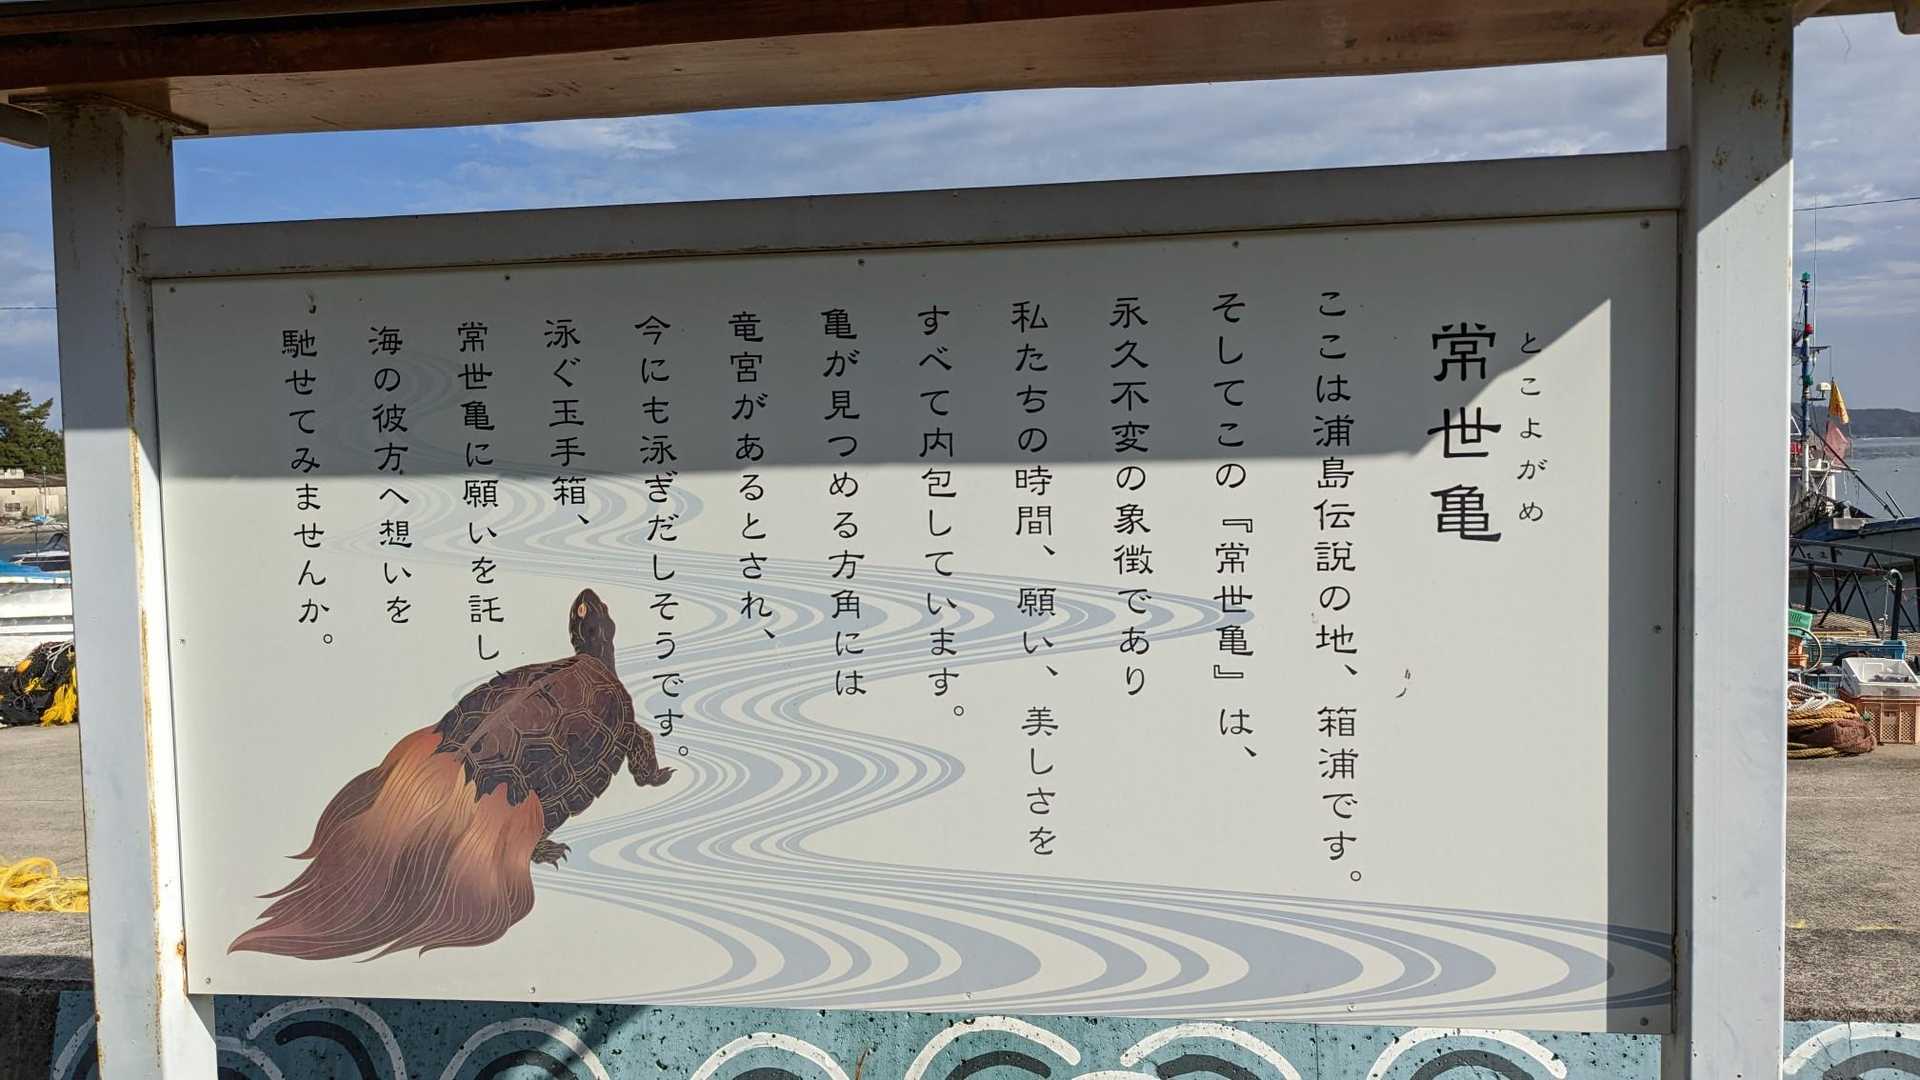 常世亀
とこよがめ
ここは浦島伝説の地、箱浦です。
そしてこの『常世亀』は、
永久不変の象徴であり
私たちの時間、願い、美しさを
すべて内包しています。
亀が見つめる方角には
竜宮があるとされ、
今にも泳ぎだしそうです。
泳ぐ玉手箱、
常世亀に願いを託し、
海の彼方へ想いを
馳せてみませんか。